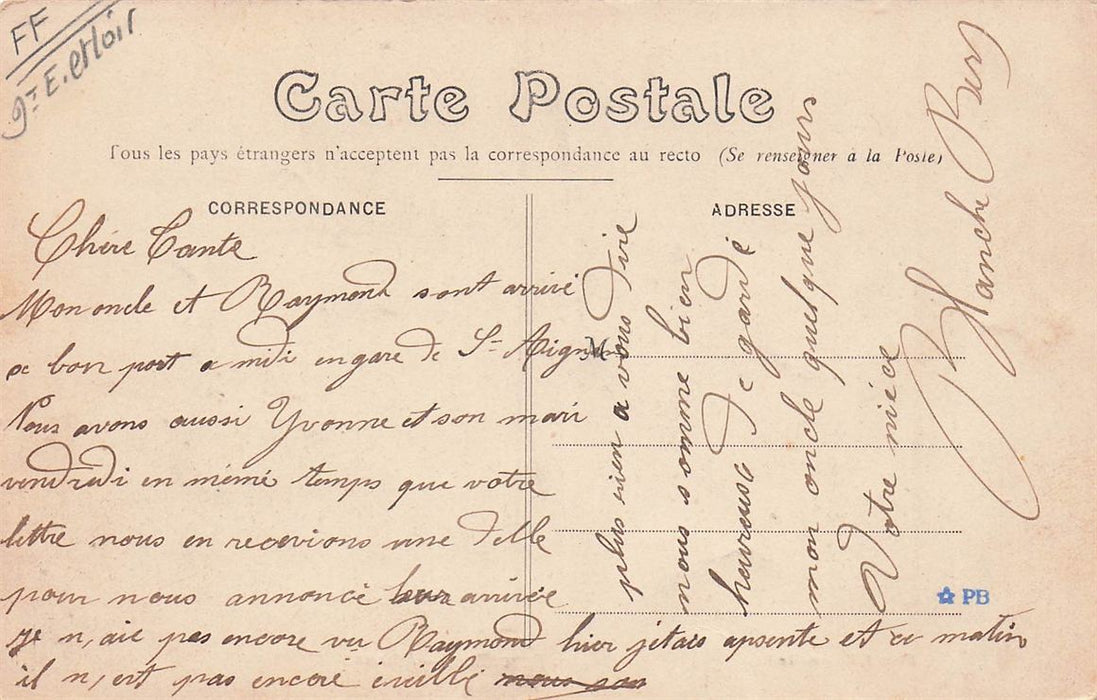 FF
gt E. et Loir
Carte Postale
Tous les pays étrangers n'acceptent pas la correspondance au recto (Se renseigner à la Poste)
CORRESPONDANCE
Chère Tante
Mon oncle et Raymond sont arrivé
a bon port a midi en gare de St Aignan
Nous avons aussi Yvonne et son mari
vendredi en même temps que votre
lettre nous en recevions une d'elle
pour nous annoncé leur arrivée
je n,ai pas encore vu Raymond hier jétais apsente et ce matin
il n,est pas encore éveillé
ADRESSE
M
plus rien a vous dire
nous somme bien
heureuse de gardé
mon oncle quelque jours
Votre nièce
Blanche
PB